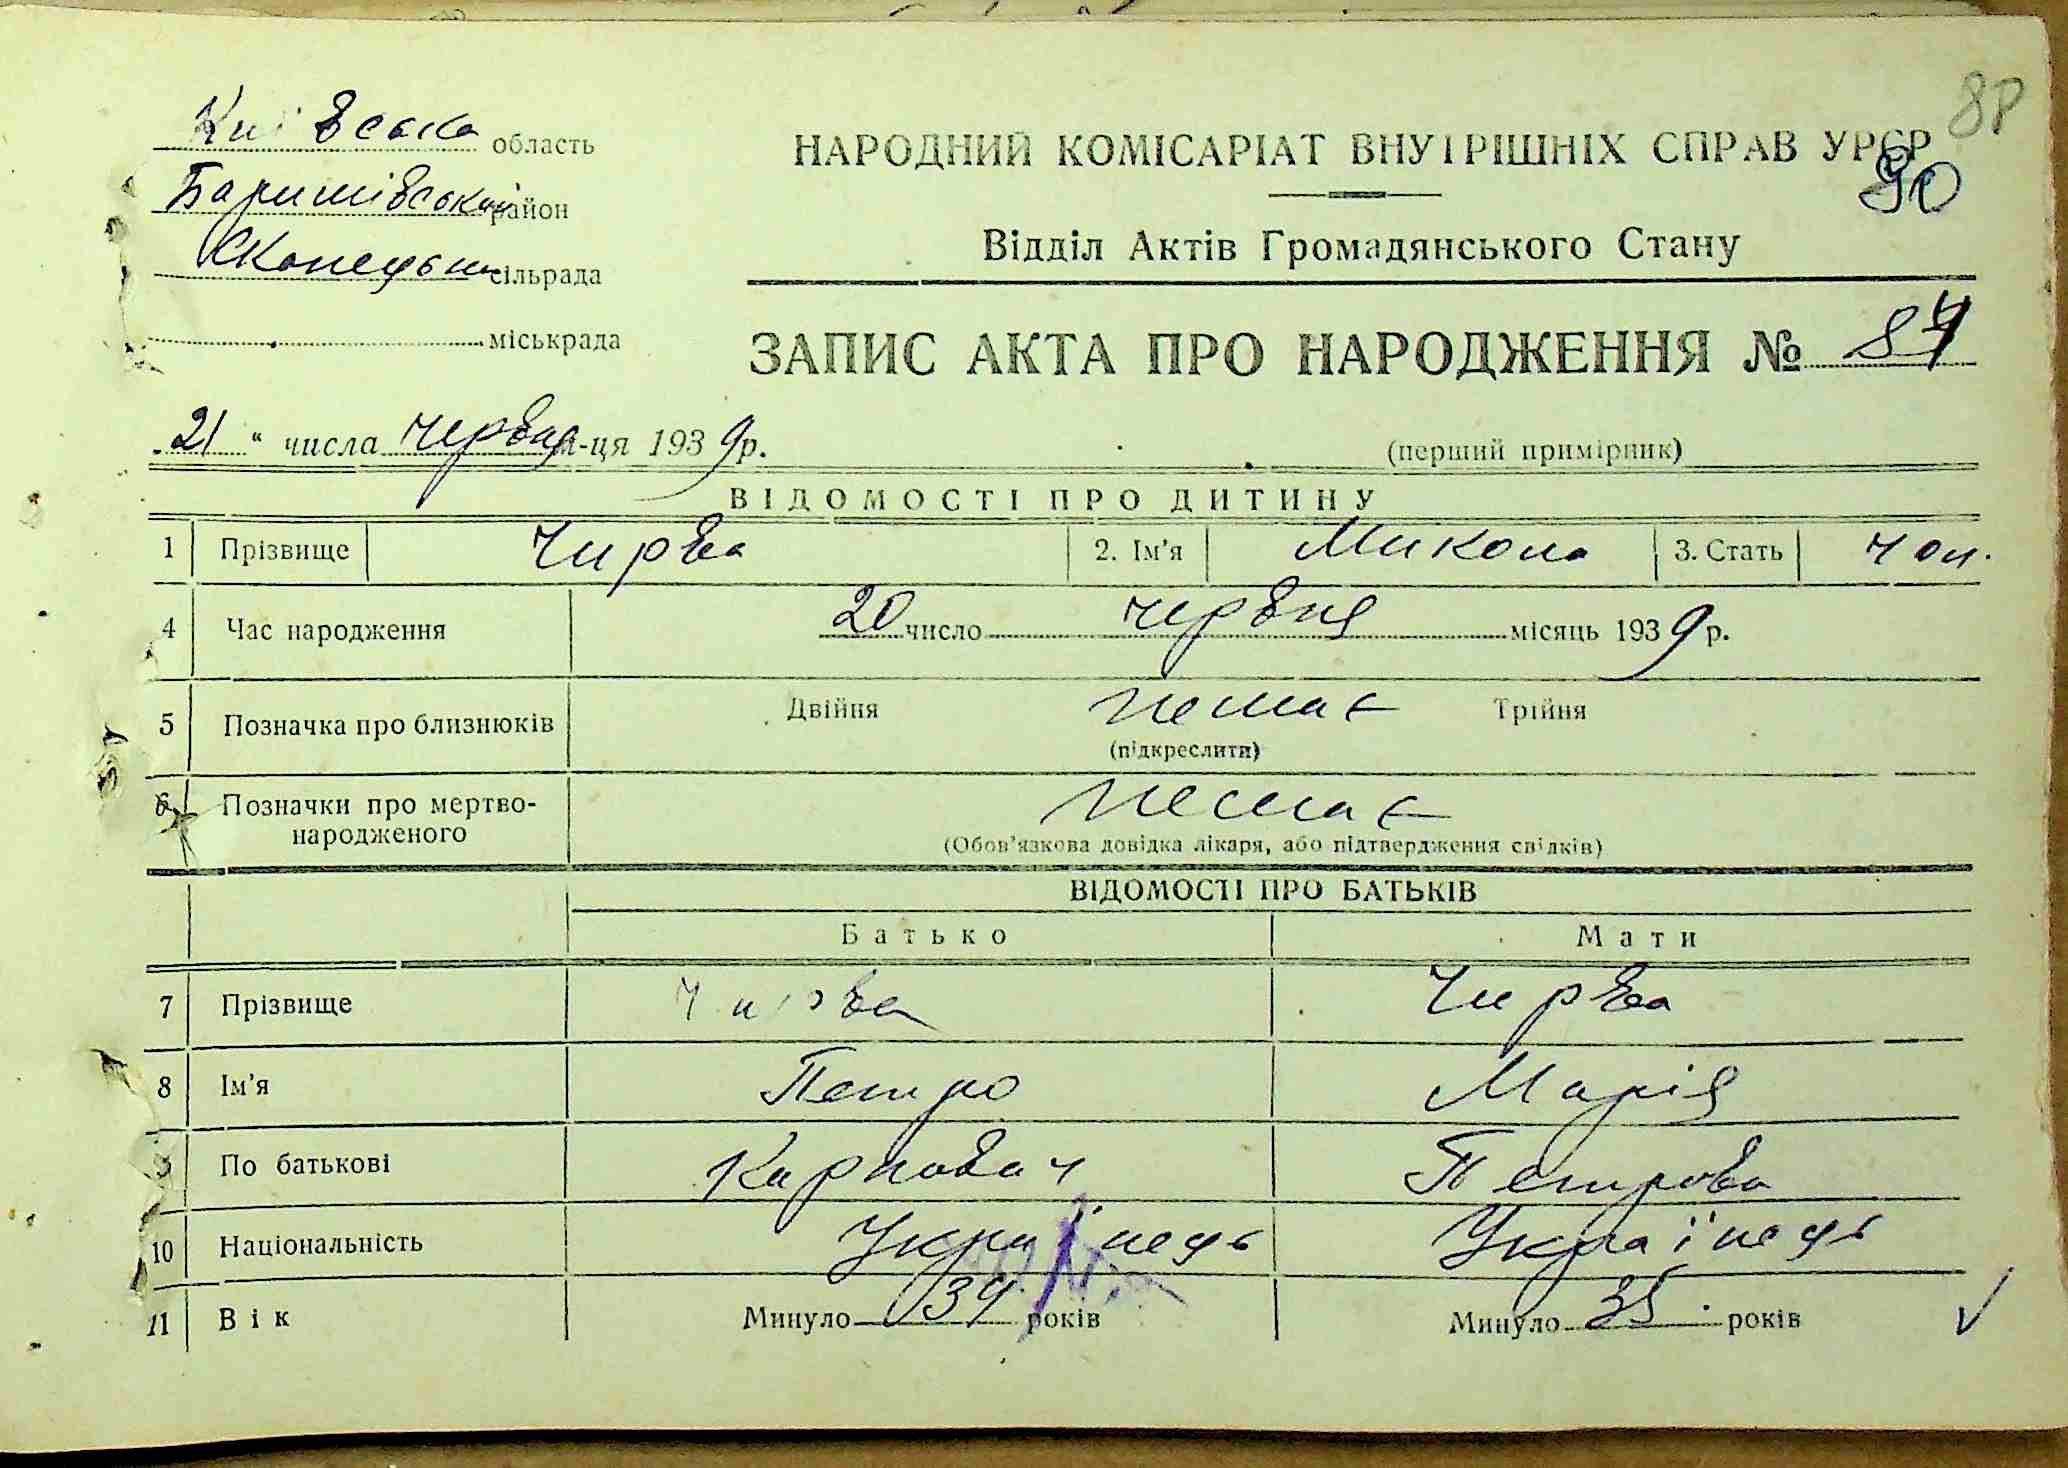 Київська область
НАРОДНИЙ КОМІСАРІАТ ВНУТРІШНІХ СПРАВ УРСР
90
Баришівський район
Відділ Актів Громадянського Стану
сільрада
міськрада
ЗАПИС АКТА ПРО НАРОДЖЕННЯ № 84
21 " числа червня м-ця 1939 р.
(перший примірник)
ВІДОМОСТІ ПРО ДИТИНУ
1 Прізвище Чирва 2. Ім'я Микола 3. Стать чол.
4 Час народження 20 число червня місяць 1939 р.
5 Позначка про близнюків Двійня немає Трійня
(підкреслити)
6 Позначки про мертво-
народженого немає
(Обов'язкова довідка лікаря, або підтвердження свідків)
ВІДОМОСТІ ПРО БАТЬКІВ
Батько Мати
7 Прізвище Чирва Чирва
8 Ім'я Петро Марія
9 По батькові Карпович Петрова
10 Національність Українець Українець
11 Вік Минуло 39 років Минуло 35 років